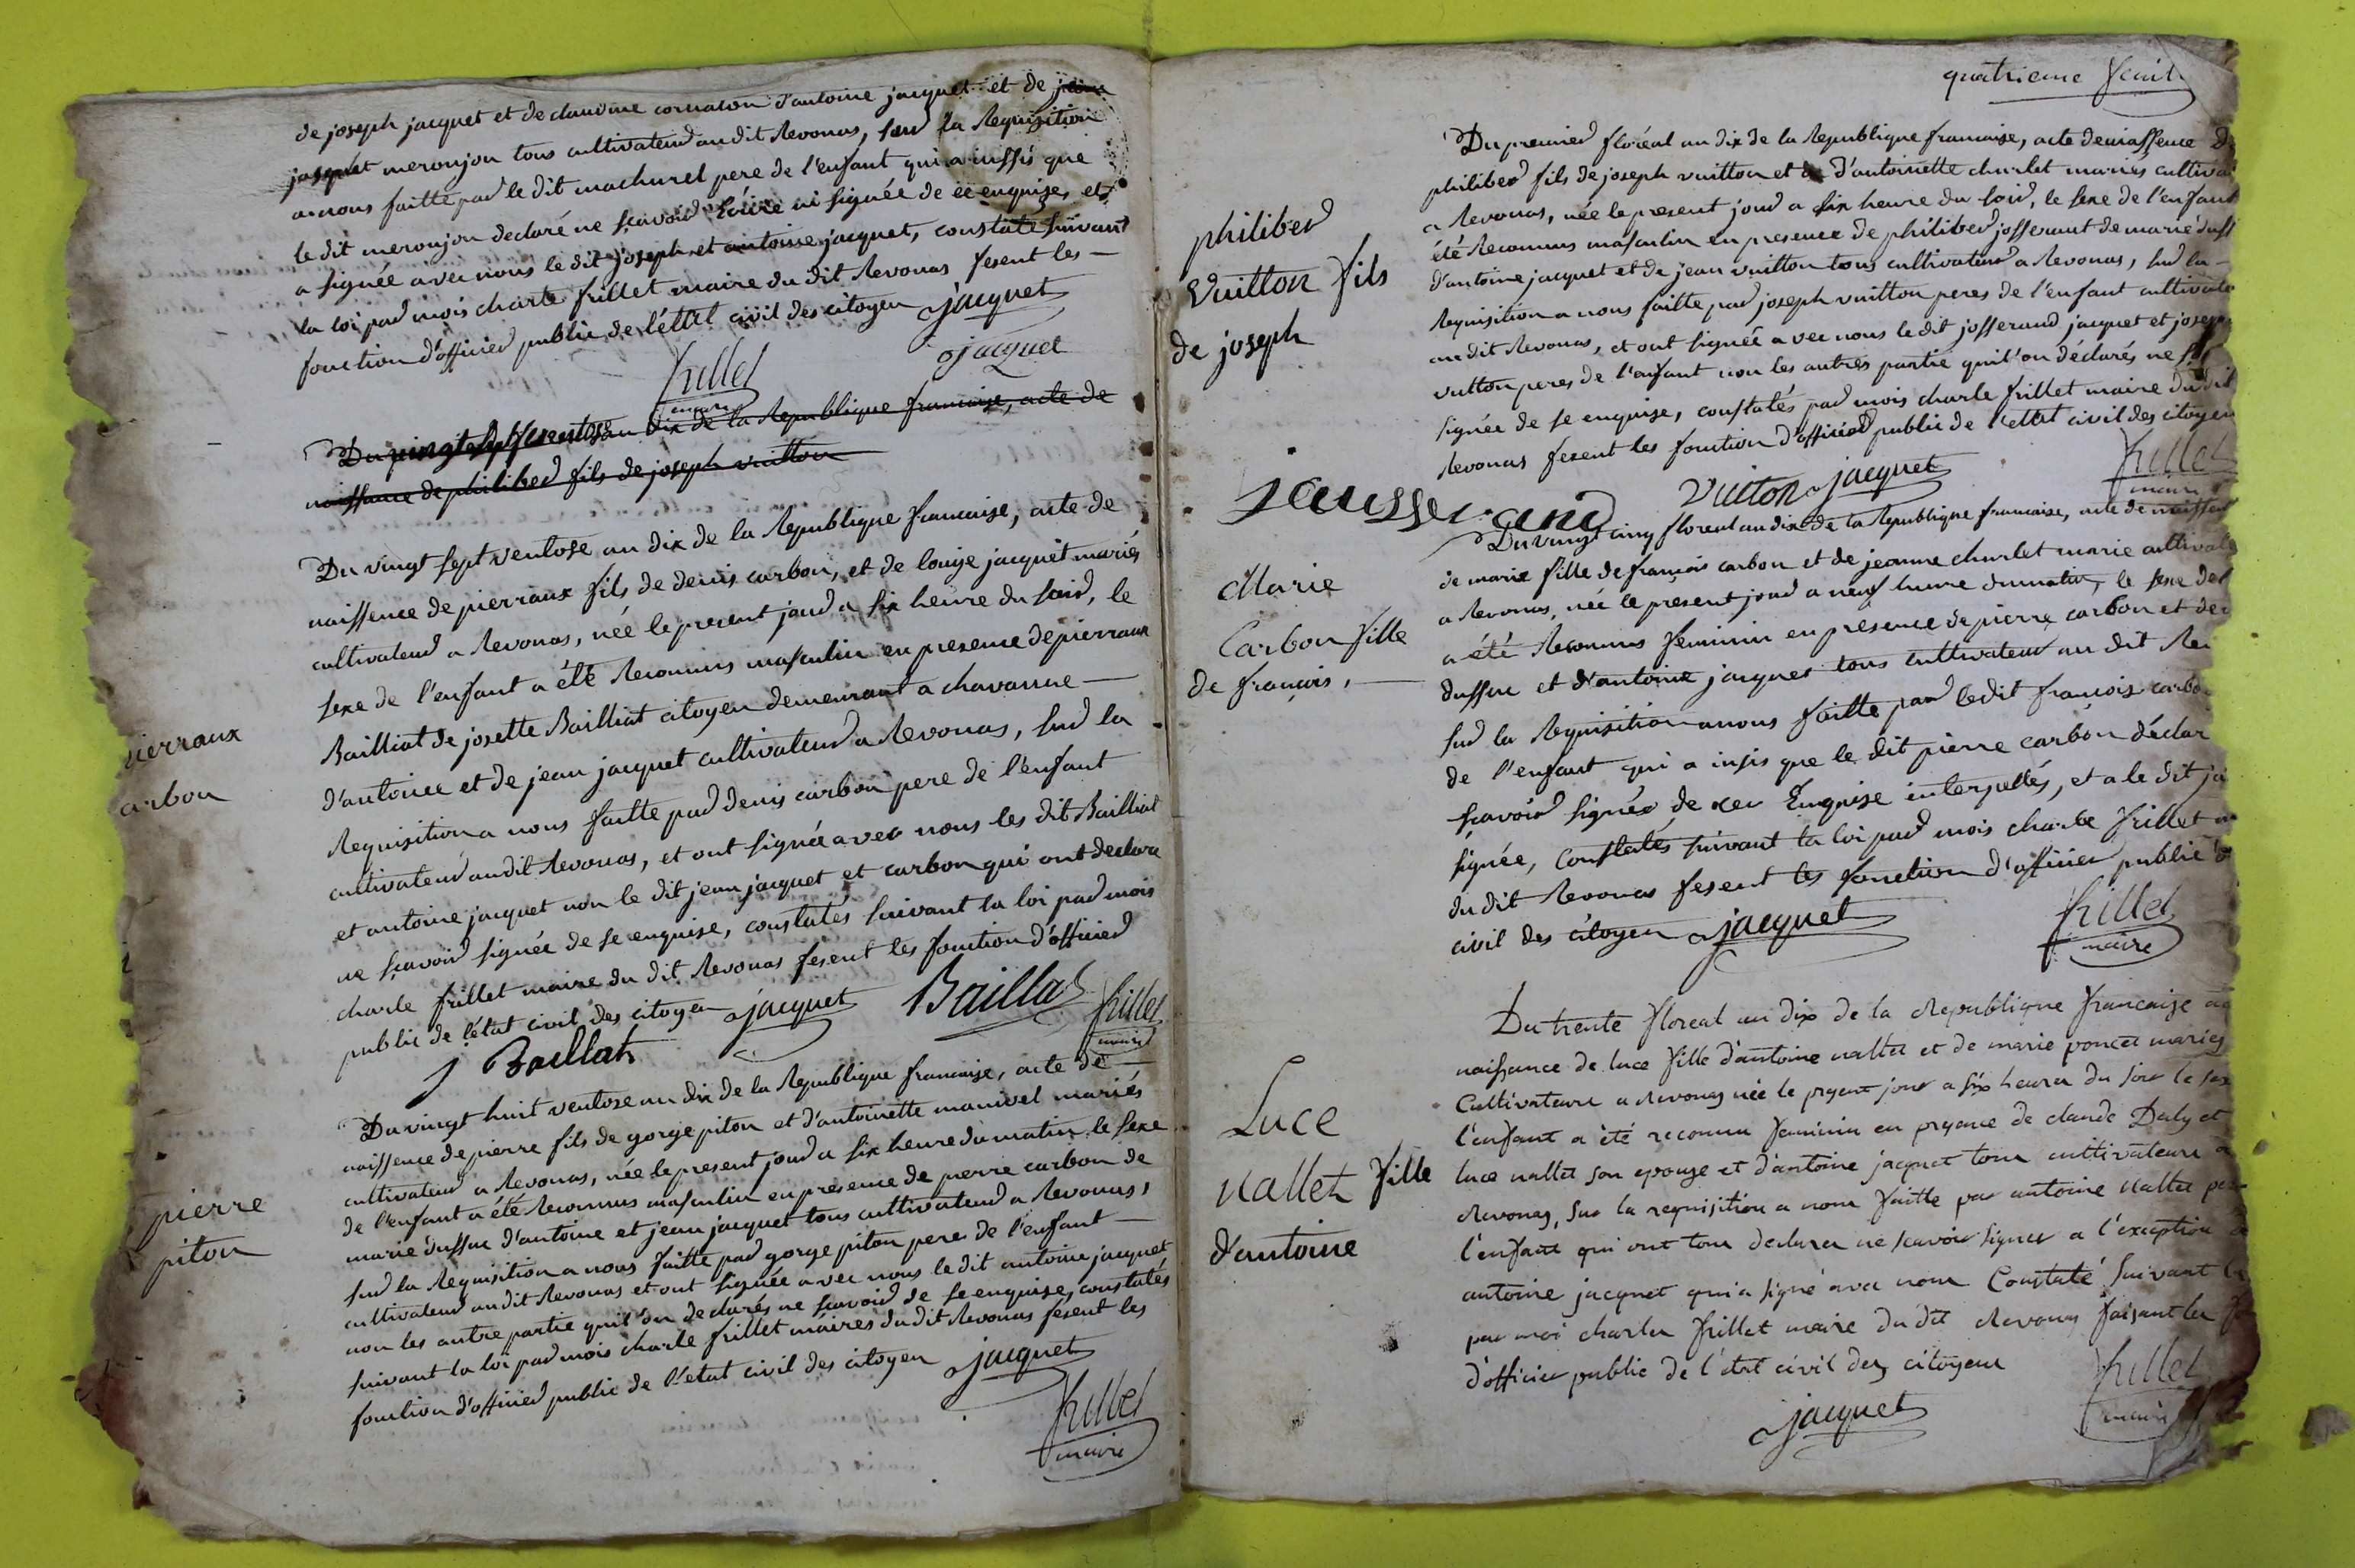 de joseph jacquet et de claudine cornaton d'antoine jacquet et de
jasquet meronjon tous cultivateur audit Revonas, sur la Requisition
a nous faitte par le dit machurel pere de l'enfant qui a insis que
le dit meronjon declaré ne scavoir Ecrire ni signée de ce enquise, et
a signée avec nous le dit joseph et antoine jacquet, constaté suivant
la loi par mois charle frillet maire du dit Revonas fesent les
fonction d'officier public de l'ettat civil des citoyen jacquet
jacquet
frillet
maire
Du vingt sept ventose an dix de la Republique francaise, acte de
naissance de philiber fils de joseph vuitton
pierraux
carbon
Du vingt sept ventose an dix de la Republique francaise, acte de
naissence de pierraux fils de denis carbon, et de louise jacquet mariés
cultivateur a Revonas, née le present jour a six heure du soir, le
sexe de l'enfant a été Reconnus masculin en presence de pierraux
Bailliat de josette Bailliat citoyen demeurant a chavanne
d'antoine et de jean jacquet cultivateur a Revonas, sur la
Requisition a nous faitte par denis carbon pere de l'enfant
cultivateur audit Revonas, et ont signée avec nous les dit Bailliat
et antoine jacquet non le dit jean jacquet et carbon qui ont declaré
ne scavoir signée de se enquise, constatés suivant la loi par mois
charle frillet maire du dit Revonas fesent les fonction d'officier
public de l'état civil des citoyen jacquet Baillat frillet
maire
J Baillat
pierre
piton
Du vingt huit ventose an dix de la Republique francaise, acte de
naissence de pierre fils de gorge piton et d'antoinette manivel mariés
cultivateur a Revonas, née le present jour a six heure du matin le sexe
de l'enfant a été Reconnus masculin en presence de pierre carbon de
marie dussuc d'antoine et jean jacquet tous cultivateur a Revonas,
sur la Requisition a nous faitte par gorge piton pere de l'enfant
cultivateur audit Revonas et ont signée avec nous le dit antoine jacquet
non les autre partie quil'on declarés ne scavoir de se enquise, constatés
suivant la loi par mois charle frillet maires du dit Revonas fesent les
fonction d'officier public de l'etat civil des citoyen jacquet
frillet
maire
quatrieme feuil
philiber
Vuitton fils
de joseph
Du premier floréal an dix de la Republique francaise, acte denaissence
philiber fils de joseph vuitton et d'antoinette churlet mariés
a Revonas, née le present jour a six heure du soir, le sexe de l'enfant
été Reconnus masculin en presence de philiber josserant de marie
d'antoine jacquet et de jean vuitton tous cultivateur a Revonas, sur la
Requisition a nous faitte par joseph vuitton peres de l'enfant
audit Revonas, et ont signée avec nous le dit josserand jacquet et joseph
vuitton peres de l'enfant non les autres partie quil'on déclarés ne
signée de se enquise, constatés par mois charle frillet maire du dit
Revonas fesent les fonction d'officier public de l'ettat civil des citoyen
jausserand Vuiton jacquet frillet
maire
Marie
Carbon fille
de francois,
Du vingt cinq floreal an dix de la Republique francaise, acte de
de marie fille de françois carbon et de jeanne churlet marie
a Revonas, née le present jour a neuf heure du matin, le sexe de
a été Reconnus feminin en presence de pierre carbon et de
dussuc et d'antoine jacquet tous cultivateur au dit
sur la Requisition a nous faitte par ledit françois
de l'enfant qui a insis que le dit pierre carbon
scavoir signée de ceu Enquise interpellés, et a le dit
signée, Constatés suivant la loi par mois charle frillet
du dit Revonas fesent les fonction d'officier public
civil des citoyen jacquet frillet
maire
Luce
Nallet fille
d'antoine
Du trente floreal an dix de la Republique francaise
naissance de luce fille d'antoine nallet et de marie poncet mariés
Cultivateurs a Revonas née le present jour a six heures du soir le
l'enfant a été reconnu feminin en presence de claude Daly et
luce nallet son epouse et d'antoine jacquet tous cultivateurs
Revonas, sur la requisition a nous faitte par antoine nallet
l'enfant qui ont tous declarer ne scavoir signer a l'exception
antoine jacquet qui a signé avec nous Constaté suivant
par moi charles frillet maire du dit Revonas faisant les
d'officier public de l'état civil des citoyens frillet
maire
jacquet